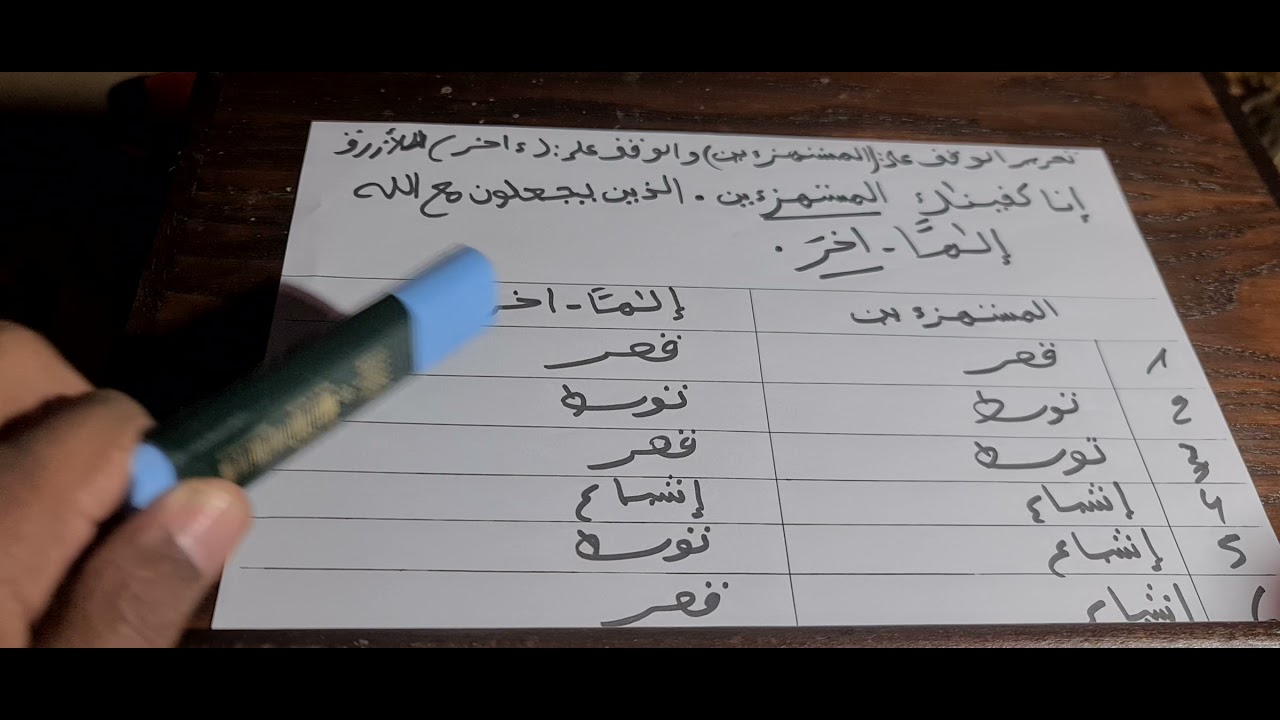 تحرير الوقف على: (المستهزءين) والوقف على: (ءاخر) للأزرق
إنا كفينٰك المستهزءين . الذين يجعلون مع الله
إلـٰهًا - اخرَ .
المستهزءين إلـٰهًا - اخ
1 قصر قصر
2 توسط توسط
3 توسط قصر
4 إشباع إشباع
5 إشباع توسط
إشباع قصر